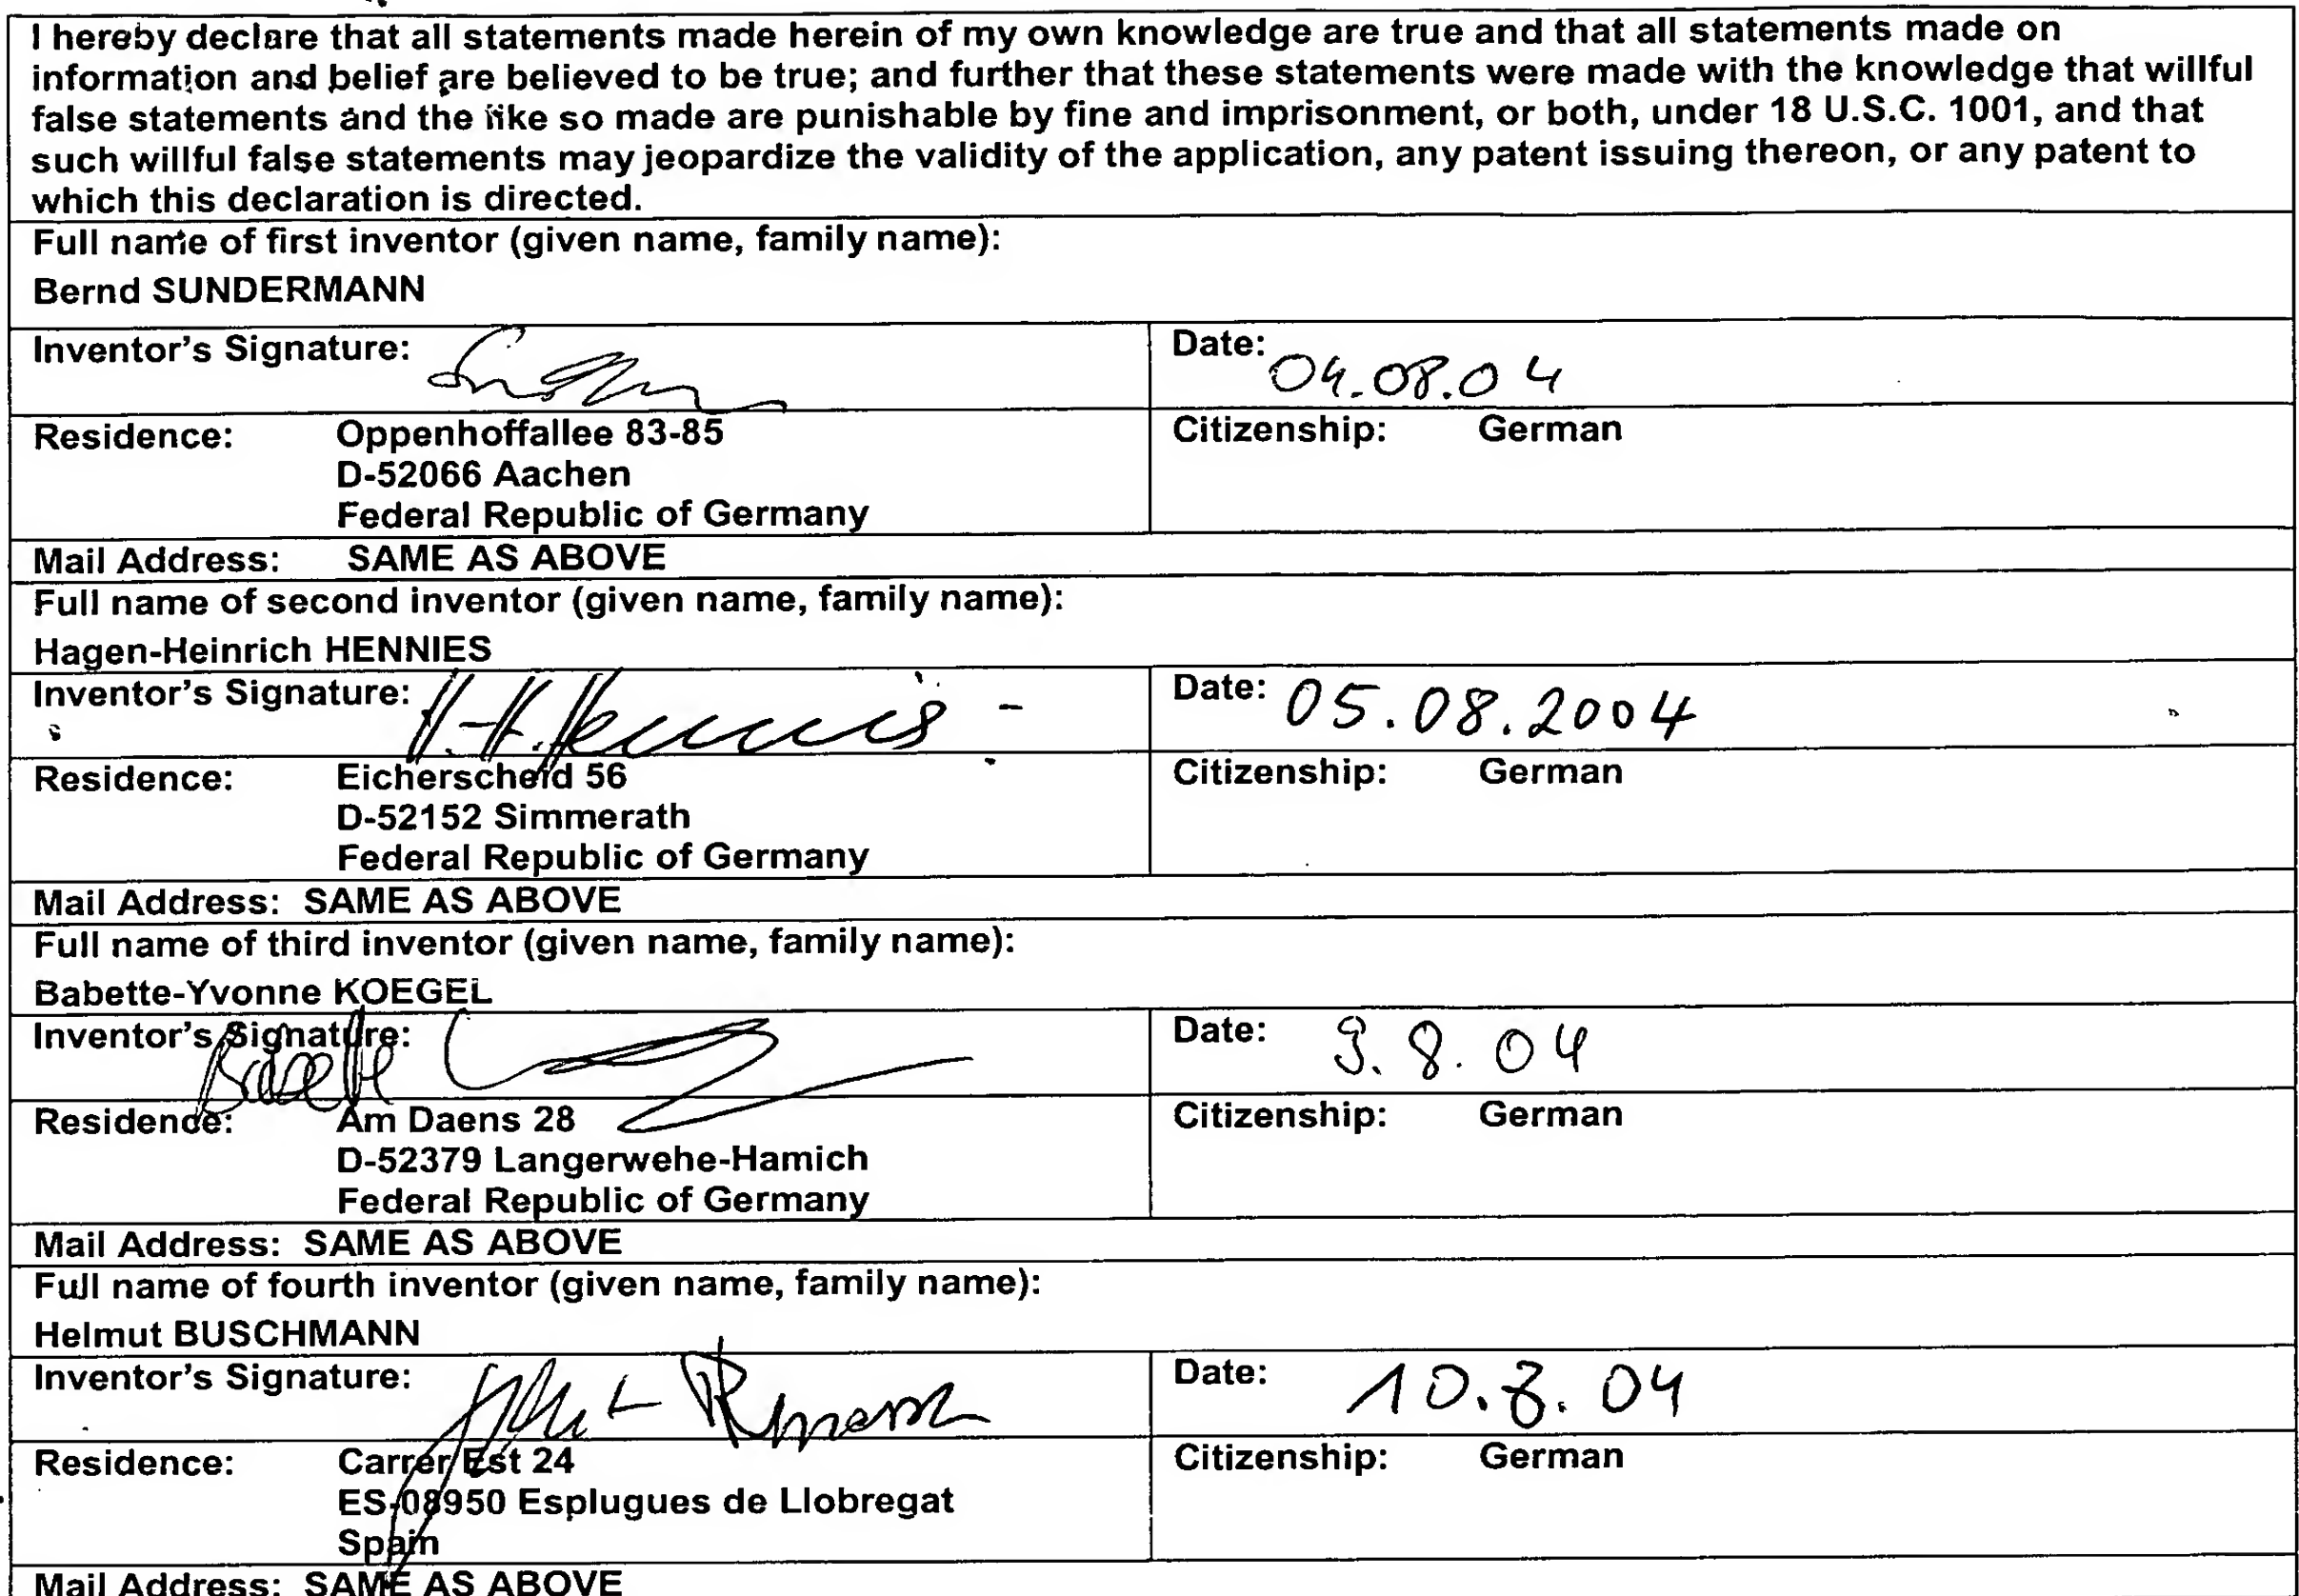 I hereby declare that all statements made herein of my own knowledge are true and that all statements made on
information and belief are believed to be true; and further that these statements were made with the knowledge that willful
false statements and the like so made are punishable by fine and imprisonment, or both, under 18 U.S.C. 1001, and that
such willful false statements may jeopardize the validity of the application, any patent issuing thereon, or any patent to
which this declaration is directed.
Full name of first inventor (given name, family name):
Bernd SUNDERMANN
Inventor's Signature: Date: 04.08.04
Residence: Oppenhoffallee 83-85 Citizenship: German
D-52066 Aachen
Federal Republic of Germany
Mail Address: SAME AS ABOVE
Full name of second inventor (given name, family name):
Hagen-Heinrich HENNIES
Inventor's Signature: H.-H. Hennies Date: 05.08.2004
Residence: Eicherscheid 56 Citizenship: German
D-52152 Simmerath
Federal Republic of Germany
Mail Address: SAME AS ABOVE
Full name of third inventor (given name, family name):
Babette-Yvonne KOEGEL
Inventor's Signature: Babette Date: 9.8.04
Residence: Am Daens 28 Citizenship: German
D-52379 Langerwehe-Hamich
Federal Republic of Germany
Mail Address: SAME AS ABOVE
Full name of fourth inventor (given name, family name):
Helmut BUSCHMANN
Inventor's Signature: Date: 10.8.04
Residence: Carrer Est 24 Citizenship: German
ES-08950 Esplugues de Llobregat
Spain
Mail Address: SAME AS ABOVE